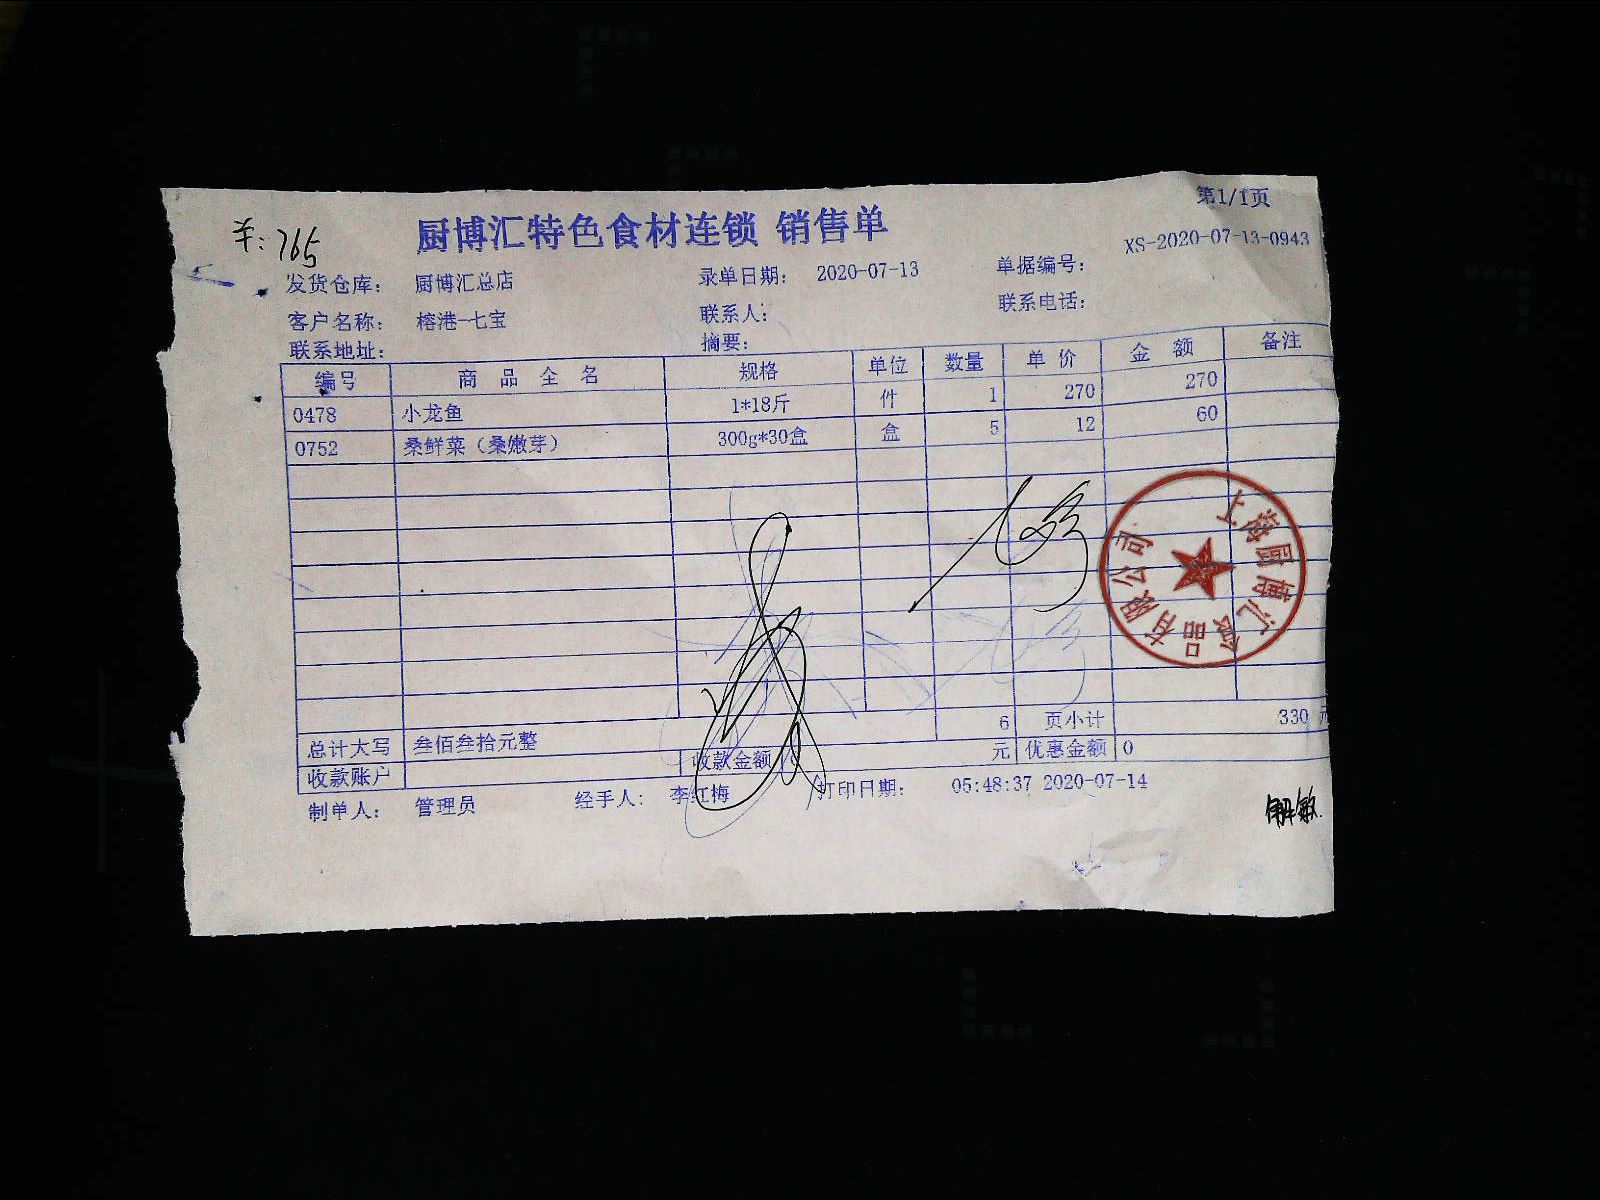 第1/1页
厨博汇特色食材连锁 销售单
765
XS-2020-07-13-0943
发货仓库： 厨博汇总店 录单日期： 2020-07-13 单据编号：
客户名称： 榕港-七宝 联系人： 联系电话：
联系地址： 摘要：
编号 商品全名 规格 单位 数量 单价 金额 备注
0478 小龙鱼 1*18斤 件 1 270 270
0752 桑鲜菜（桑嫩芽） 300g*30盒 盒 5 12 60
上海厨博汇食品有限公司
6 页小计 330 元
总计大写 叁佰叁拾元整
收款账户 收款金额 元 优惠金额 0
制单人： 管理员 经手人： 李红梅 打印日期： 05:48:37 2020-07-14